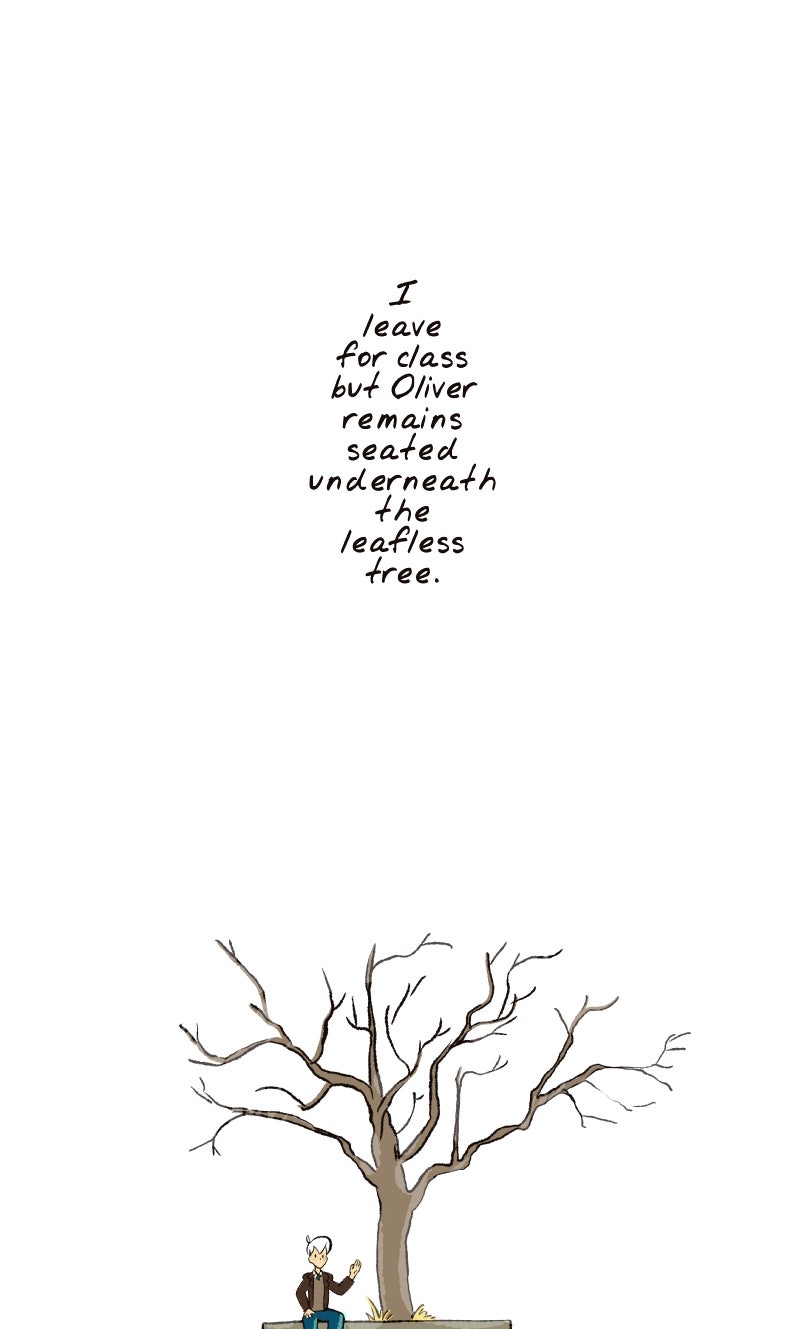 I
leave
for class
but Oliver
remains
seated
underneath
the
leafless
tree.